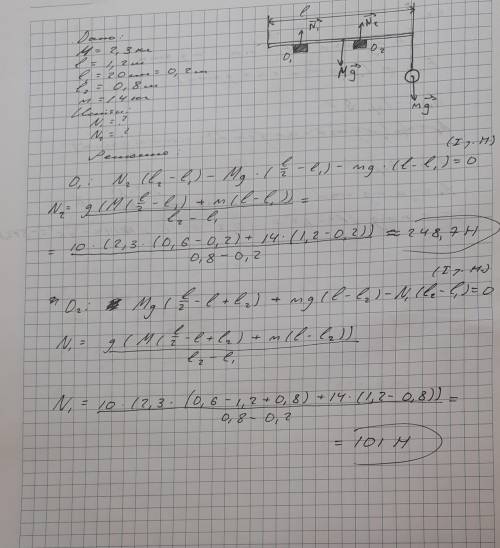 l
N₁ N₂
Дано:
M = 2,3 кг
O₁ O₂
l = 1,2 м
Mg
l₁ = 20 см = 0,2 м
l₂ = 0,8 м
mg
m = 14 кг
N₁ = ?
N₂ = ?
Решение:
(I у.М)
O₁: N₂(l₂ - l₁) - Mg·(l/2 - l₁) - mg·(l - l₁) = 0
N₂ = g(M(l/2 - l₁) + m(l - l₁)) / l₂ - l₁ =
= 10·(2,3·(0,6 - 0,2) + 14·(1,2 - 0,2)) / 0,8 - 0,2 ≈ 248,7 Н
(I у.М)
O₂: Mg(l/2 - l + l₂) + mg(l - l₂) - N₁(l₂ - l₁) = 0
N₁ = g(M(l/2 - l + l₂) + m(l - l₂)) / l₂ - l₁
N₁ = 10·(2,3·(0,6 - 1,2 + 0,8) + 14·(1,2 - 0,8)) / 0,8 - 0,2 =
= 101 Н